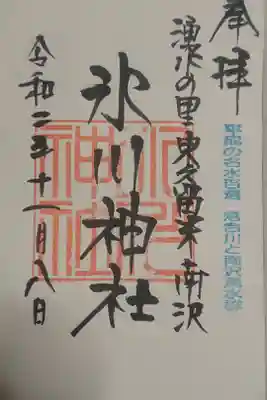 奉拝
平成の名水百選 落合川と南沢湧水群
湧水の里 東久留米 南沢
氷川神社
氷川神社
令和二年十一月八日